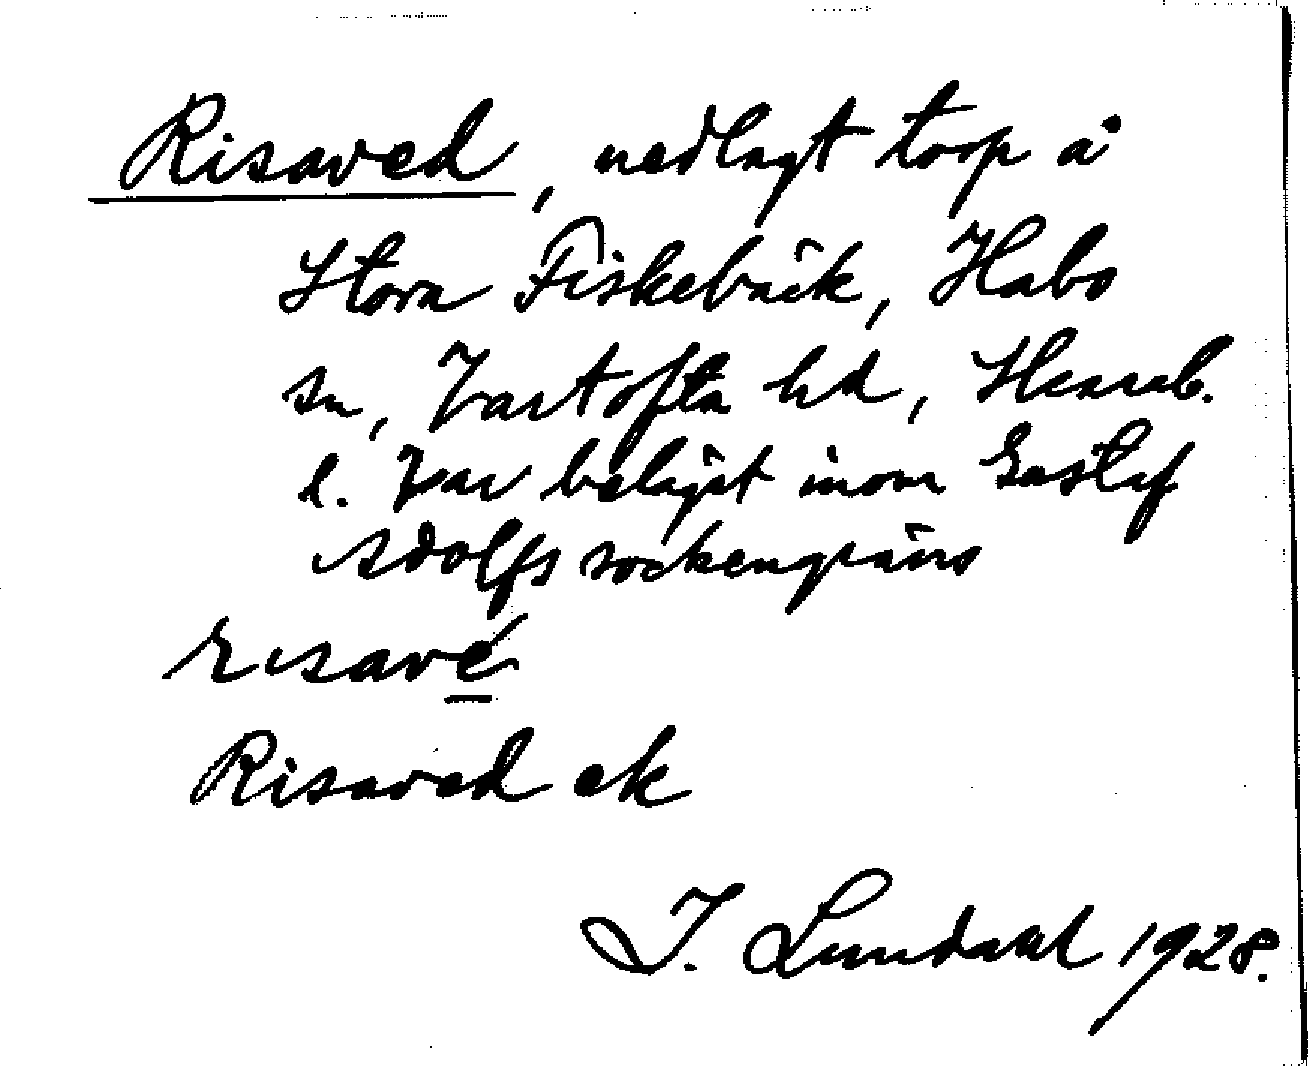 Risaved, nedlagt torp å
Stora Fiskebäck, Habo
sn, Vartofta hd, Skarab.
l. Var beläget inom Gustaf
Adolfs sockengräns
risavé
Risaved ek
I. Lundahl 1928.